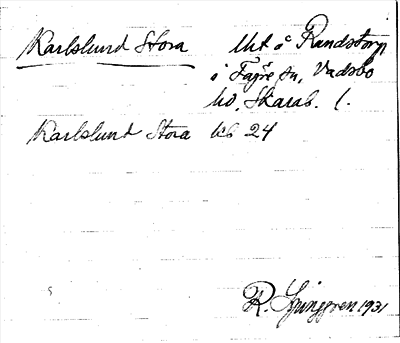 Karlslund Stora Utt å Randstorp
i Fägre sn, Vadsbo
hd. Skarab. l.
Karlslund Stora kb 24
R. Ljunggren 1931